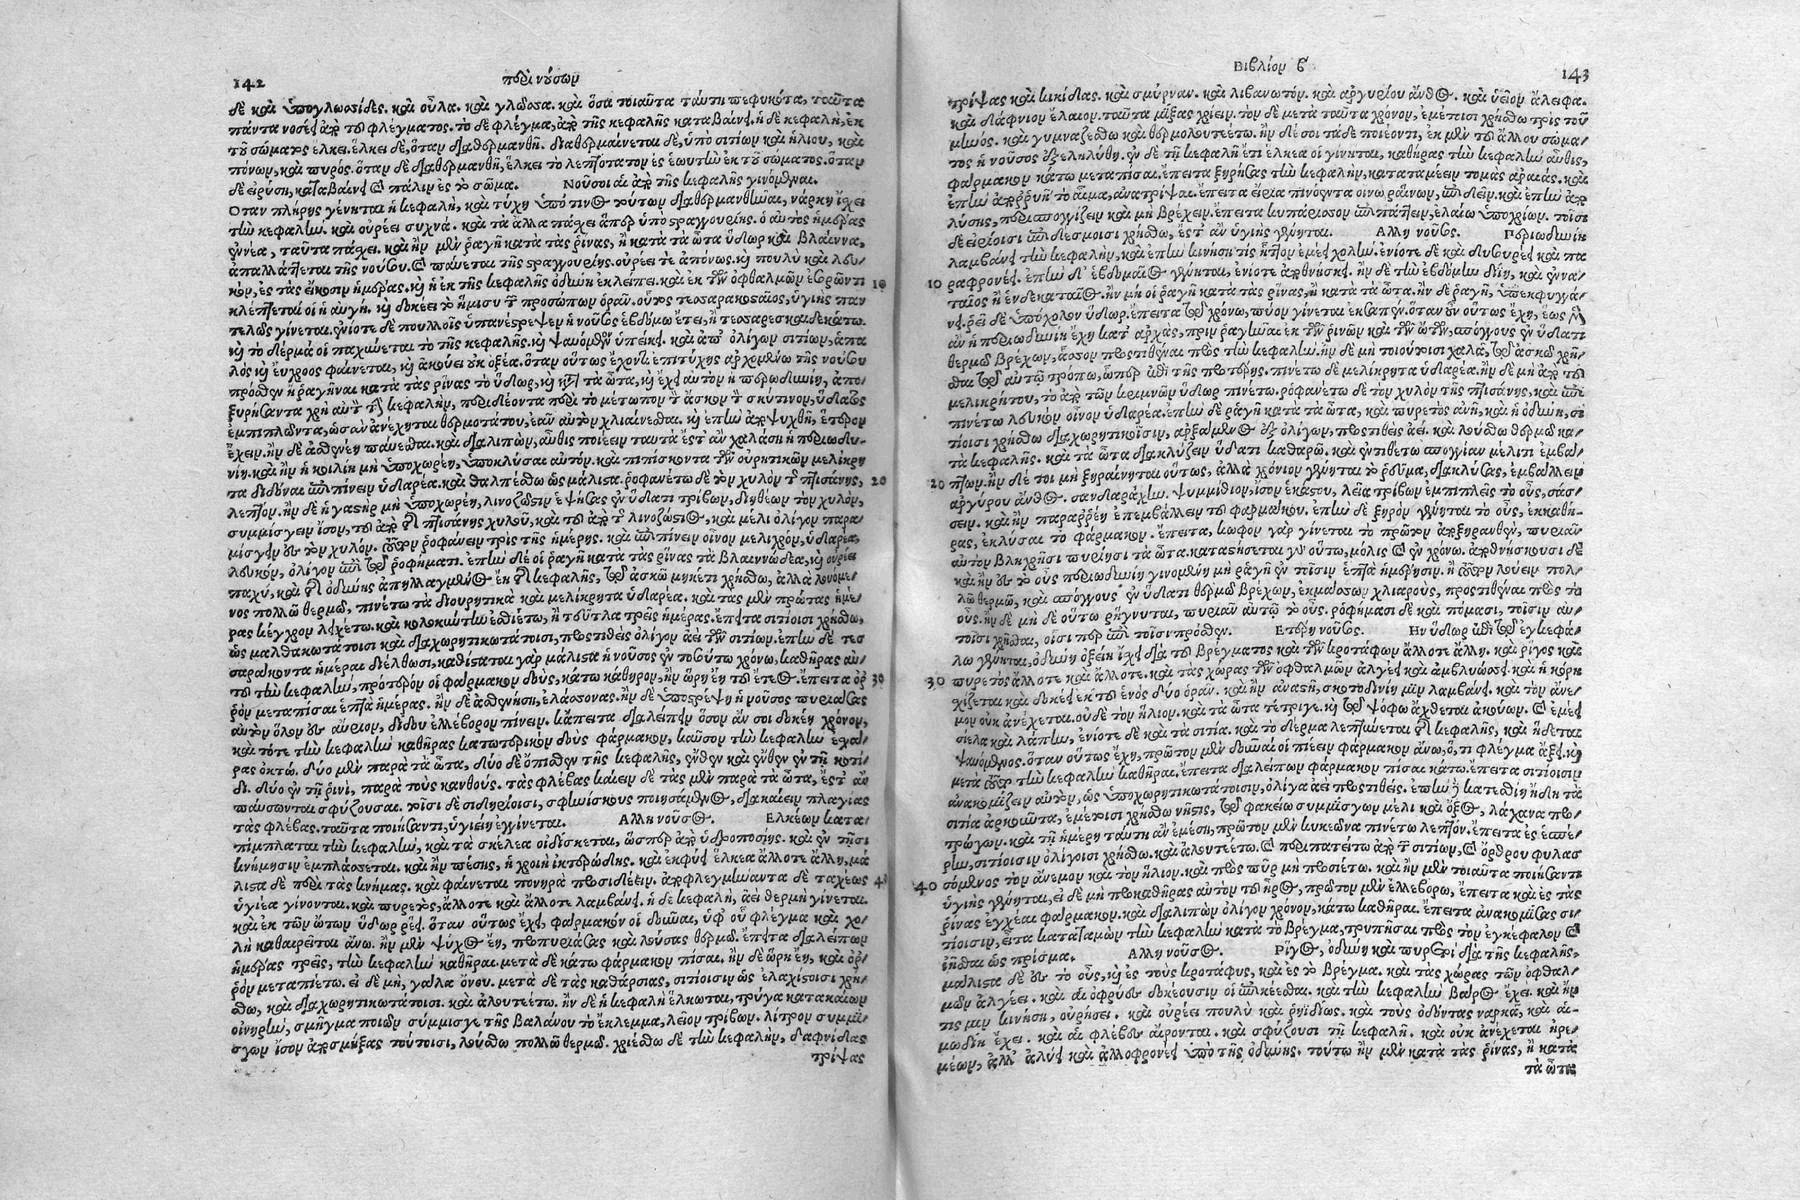 142 περὶ νούσων
δὲ καὶ ὑπογλωσσίδες. καὶ οὖλα. καὶ γλῶσσα. καὶ ὅσα τοιαῦτα ταύτῃ πεφυκότα, ταῦτα
πάντα νοσέει ἀπὸ τοῦ φλέγματος. τὸ δὲ φλέγμα, ἀπὸ τῆς κεφαλῆς καταβαίνει. ἡ δὲ κεφαλὴ, ἐκ
τοῦ σώματος ἕλκει. ἕλκει δὲ, ὅταν διαθερμανθῇ. διαθερμαίνεται δὲ, ὑπὸ σιτίων καὶ ἡλίου, καὶ
πόνων, καὶ πυρός. ὅταν δὲ διαθερμανθῇ, ἕλκει τὸ λεπτότατον ἐς ἑωυτὴν ἐκ τοῦ σώματος. ὅταν
δὲ εἰρύσῃ, καταβαίνει καὶ πάλιν ἐς τὸ σῶμα. Νοῦσοι αἱ ἀπὸ τῆς κεφαλῆς γινόμεναι.
Ὅταν πλήρης γένηται ἡ κεφαλὴ, καὶ τύχῃ ὑπό τινος τούτων διαθερμανθεῖσα, νάρκη ἴσχει
τὴν κεφαλὴν. καὶ οὐρέει συχνά. καὶ τὰ ἄλλα πάσχει ἅπερ ὑπὸ στραγγουρίης. ὁ αὐτὸς ἡμέρας
ἐννέα, ταῦτα πάσχει. καὶ ἢν μὲν ῥαγῇ κατὰ τὰς ῥῖνας, ἢ κατὰ τὰ ὦτα ὕδωρ καὶ βλέννα,
ἀπαλλάττεται τῆς νούσου. καὶ παύεται τῆς στραγγουρίης. οὐρέει τε ἀπόνως. καὶ πουλὺ καὶ λευ-
κὸν, ἐς τὰς εἴκοσιν ἡμέρας. καὶ ἡ ἐκ τῆς κεφαλῆς ὀδύνη ἐκλείπει. καὶ ἐκ τῶν ὀφθαλμῶν ἐσορῶντι 10
κλέπτεταί οἱ ἡ αὐγὴ. καὶ δοκέει τὸ ἥμισυ τῶν προσώπων ὁρᾶν. οὗτος τεσσαρακοσταῖος, ὑγιὴς παν
τελῶς γίνεται. ἐνίοτε δὲ πουλλοῖς ὑπανέστρεψεν ἡ νοῦσος ἑβδόμῳ ἔτει, ἢ τεσσαρεσκαιδεκάτῳ.
καὶ τὸ δέρμα οἱ παχύνεται τὸ τῆς κεφαλῆς. καὶ ψαυόμενον ὑπείκει. καὶ ἀπ' ὀλίγων σιτίων, ἁπα
λὸς καὶ εὔχροος φαίνεται, καὶ ἀκούει οὐκ ὀξέα. ὅταν οὕτως ἔχοντι ἐπιτύχῃς ἀρχομένῳ τῆς νούσου
πρόσθεν ἢ ῥαγῆναι κατὰ τὰς ῥῖνας τὸ ὕδωρ, καὶ κατὰ τὰ ὦτα, καὶ ἔχει αὐτὸν ἡ περιωδυνίη, ἀπο-
ξυρήσαντα χρὴ αὐτοῦ τὴν κεφαλὴν, περιδέοντα περὶ τὸ μέτωπον τὸν ἀσκὸν τὸν σκύτινον, ὕδατος
ἐμπιπλῶντα, ὡς ἂν ἀνέχηται θερμοτάτου, ἐᾶν αὐτὸν χλιαίνεσθαι. καὶ ἐπὴν ἀποψυχθῇ, ἕτερον
ἔχειν. ἢν δὲ ἀσθενέῃ παύεσθαι. καὶ διαλιπὼν, αὖθις ποιέειν ταῦτα ἔστ' ἂν χαλάσῃ ἡ περιωδυ-
νίη. καὶ ἢν ἡ κοιλίη μὴ ὑποχωρέῃ, ὑποκλύσαι αὐτὸν. καὶ πιπίσκοντα τῶν οὐρητικῶν μελίκρη
τα διδόναι ἐπιπίνειν ὑδαρέα. καὶ θαλπέσθω ὡς μάλιστα. ῥοφανέτω δὲ τὸν χυλὸν τῆς πτισάνης, 20
λεπτὸν. ἢν δὲ ἡ γαστὴρ μὴ ὑποχωρέῃ, λινόζωστιν ἑψήσας ἐν ὕδατι τρίβων, διηθέων τὸν χυλὸν,
συμμίσγειν ἴσον, τοῦ ἀπὸ τῆς πτισάνης χυλοῦ, καὶ τοῦ ἀπὸ τῆς λινοζώστιος, καὶ μέλι ὀλίγον παρα
μίσγειν ἐς τὸν χυλὸν. τοῦτον ῥοφάνειν τρὶς τῆς ἡμέρης. καὶ ἐπιπίνειν οἶνον μελιχρὸν, ὑδαρέα,
λευκὸν, ὀλίγον ἐπὶ τῷ ῥοφήματι. ἐπὴν δέ οἱ ῥαγῇ κατὰ τὰς ῥῖνας τὰ βλεννώδεα, καὶ οὐρέει
παχὺ, καὶ τῆς ὀδύνης ἀπηλλαγμένος ἔῃ τῆς κεφαλῆς, τῷ ἀσκῷ μηκέτι χρήσθω, ἀλλὰ λουόμε-
νος πολλῷ θερμῷ, πινέτω τὰ διουρητικὰ καὶ μελίκρητα ὑδαρέα. καὶ τὰς μὲν πρώτας ἡμέ-
ρας κέγχρον λειχέτω. καὶ κολοκύντην ἐσθιέτω, ἢ τεῦτλα τρεῖς ἡμέρας. ἔπειτα σιτίοισι χρήσθω,
ὡς μαλθακωτάτοισι καὶ διαχωρητικωτάτοισι, προστιθεὶς ὀλίγον ἀεὶ τῶν σιτίων. ἐπὴν δὲ τεσ
σαράκοντα ἡμέραι διέλθωσι, καθίσταται γὰρ μάλιστα ἡ νοῦσος ἐν τοσούτῳ χρόνῳ, καθήρας αὐ-
τοῦ τὴν κεφαλὴν, πρότερον οἱ φάρμακον δοὺς, κάτω κάθηρον, ἢν ὥρη ἔῃ τοῦ ἔτεος. ἔπειτα ὀρ 30
ρὸν μεταπῖσαι ἑπτὰ ἡμέρας. ἢν δὲ ἀσθενήσῃ, ἐλάσσονας. ἢν δὲ ὑποστρέψῃ ἡ νοῦσος πυριάσας
αὐτὸν ὅλον ἐς αὔριον, δίδου ἐλλέβορον πίνειν. κἄπειτα διαλείπειν ὅσον ἄν σοι δοκέῃ χρόνον,
καὶ τότε τὴν κεφαλὴν καθήρας κατωτερικὸν δοὺς φάρμακον, καῦσον τὴν κεφαλὴν ἐσχά-
ρας ὀκτώ. δύο μὲν παρὰ τὰ ὦτα, δύο δὲ ὄπισθεν τῆς κεφαλῆς, ἔνθεν καὶ ἔνθεν ἐν τῇ κοτί-
δι. δύο ἐν τῇ ῥινὶ, παρὰ τοὺς κανθούς. τὰς φλέβας καίειν δὲ τὰς μὲν παρὰ τὰ ὦτα, ἔστ' ἂν
παύσωνται σφύζουσαι. τοῖσι δὲ σιδηρίοισι, σφηνίσκους ποιησάμενος, διακαίειν πλαγίας
τὰς φλέβας. ταῦτα ποιήσαντι, ὑγιείη ἐγγίνεται. Ἄλλη νοῦσος. Ἑλκέων κατα-
πίμπλαται τὴν κεφαλὴν, καὶ τὰ σκέλεα οἰδίσκεται, ὥσπερ ἀπὸ ὑδροποσίης. καὶ ἐν τῇσι
κνήμῃσιν ἐμπλάσσεται. καὶ ἢν πιέσῃς, ἡ χροιὴ ἰκτερώδης. καὶ ἐκφύει ἕλκεα ἄλλοτε ἄλλῃ, μά
λιστα δὲ περὶ τὰς κνήμας. καὶ φαίνεται πονηρὰ προσιδέειν. ἀποφλεγμήναντα δὲ ταχέως 40
ὑγιέα γίνονται. καὶ πυρετὸς, ἄλλοτε καὶ ἄλλοτε λαμβάνει. ἡ δὲ κεφαλὴ, ἀεὶ θερμὴ γίνεται.
καὶ ἐκ τῶν ὤτων ὕδωρ ῥέει. ὅταν οὕτως ἔχῃ, φάρμακόν οἱ δοῦναι, ὑφ' οὗ φλέγμα καὶ χο-
λὴ καθαιρεῖται ἄνω. ἢν μὲν ψύχος ἔῃ, προπυριάσας καὶ λούσας θερμῷ. ἔπειτα διαλείπων
ἡμέρας τρεῖς, τὴν κεφαλὴν καθῆραι. μετὰ δὲ κάτω φάρμακον πῖσαι. ἢν δὲ ὥρη ἔῃ, καὶ ὀρ-
ρὸν μεταπιέτω. εἰ δὲ μὴ, γάλα ὄνου. μετὰ δὲ τὰς καθάρσιας, σιτίοισιν ὡς ἐλαχίστοισι χρή-
σθω, καὶ διαχωρητικωτάτοισι. καὶ ἀλουτεέτω. ἢν δὲ ἡ κεφαλὴ ἑλκῶται, τρύγα κατακαίων
οἰνηρὴν, σμῆγμα ποιῶν σύμμισγε τῆς βαλάνου τὸ ἔκλεμμα, λεῖον τρίβων. λίτρον συμμί-
σγων ἴσον ἀποσμήξας τούτοισι, λούσθω πολλῷ θερμῷ. χριέσθω δὲ τὴν κεφαλὴν, δαφνίδας
τρίψας
Βιβλίον β 143
τρίψας καὶ κικίδας. καὶ σμύρναν. καὶ λιβανωτὸν. καὶ ἀργυρίου ἄνθος. καὶ ὕειον ἄλειφα.
καὶ δάφνινον ἔλαιον. ταῦτα μίξας χρίειν. τὸν δὲ μετὰ ταῦτα χρόνον, ἐμέτοισι χρήσθω τρὶς τοῦ
μηνὸς. καὶ γυμναζέσθω καὶ θερμολουτεέτω. ἢν δέ σοι τάδε ποιέοντι, ἐκ μὲν τοῦ ἄλλου σώμα-
τος ἡ νοῦσος ἐξεληλύθῃ. ἐν δὲ τῇ κεφαλῇ ἔτι ἕλκεα οἱ γίνηται, καθήρας τὴν κεφαλὴν αὖθις,
φάρμακον κάτω μεταπῖσαι. ἔπειτα ξυρήσας τὴν κεφαλὴν, καταταμέειν τομὰς ἀραιάς. καὶ
ἐπὴν ἀπορρυῇ τὸ αἷμα, ἀνατρίψαι. ἔπειτα εἴρια πινόεντα οἴνῳ ῥαίνων, ἐπιδεῖν. καὶ ἐπὴν ἀπο
λύσῃς, περισπογγίζειν καὶ μὴ βρέχειν. ἔπειτα κυπάρισσον ἐπιπάττειν, ἐλαίῳ ὑποχρίων. τοῖσι
δὲ εἰρίοισι ἐπιδέσμοισι χρήσθω, ἔστ' ἂν ὑγιὴς γένηται. Ἄλλη νοῦσος. Περιωδυνίη
λαμβάνει τὴν κεφαλὴν, καὶ ἐπὴν κινήσῃ τις ἧττον ἐμέει χολὴν. ἐνίοτε δὲ καὶ δυσουρέει καὶ πα
ραφρονέει. ἐπὴν δ' ἑβδομαῖος γένηται, ἐνίοτε ἀποθνήσκει. ἢν δὲ τὴν ἑβδόμην φύγῃ, καὶ ἐννα- 10
ταῖος ἢ ἑνδεκαταῖος. ἢν μή οἱ ῥαγῇ κατὰ τὰς ῥῖνας, ἢ κατὰ τὰ ὦτα. ἢν δὲ ῥαγῇ, ὑπεκφυγγά-
νει. ῥέει δὲ ὑπόχολον ὕδωρ. ἔπειτα τῷ χρόνῳ, πύον γίνεται ἐκσαπέν. ὅταν οὖν οὕτως ἔχῃ, ἕως μὲν
ἂν ἡ περιωδυνίη ἔχῃ κατ' ἀρχὰς, πρὶν ῥαγῆναι ἐκ τῶν ῥινῶν καὶ τῶν ὤτων, σπόγγους ἐν ὕδατι
θερμῷ βρέχων, ἆσσον προστιθέναι πρὸς τὴν κεφαλὴν. ἢν δὲ μὴ τοιούτοισι χαλᾷ, τῷ ἀσκῷ χρῆ-
σθαι τῷ αὐτῷ τρόπῳ, ὥσπερ ἐπὶ τῆς προτέρης. πινέτω δὲ μελίκρητα ὑδαρέα. ἢν δὲ μὴ ἀπὸ τοῦ
μελικρήτου, τὸ ἀπὸ τῶν κρίμνων ὕδωρ πινέτω. ῥοφανέτω δὲ τὸν χυλὸν τῆς πτισάνης, καὶ ἐπι
πινέτω λευκὸν οἶνον ὑδαρέα. ἐπὴν δὲ ῥαγῇ κατὰ τὰ ὦτα, καὶ πυρετὸς ἀνῇ, καὶ ἡ ὀδύνη, σι
τίοισι χρήσθω διαχωρητικοῖσιν, ἀρξάμενος ἐξ ὀλίγων, προστιθεὶς ἀεί. καὶ λούσθω θερμῷ κα-
τὰ κεφαλῆς. καὶ τὰ ὦτα διακλύζειν ὕδατι καθαρῷ. καὶ ἐντιθέτω σπογγίαν μέλιτι ἐμβά-
πτων. ἢν δέ τοι μὴ ξηραίνηται οὕτως, ἀλλὰ χρόνιον γένηται τὸ ῥεῦμα, διακλύσας, ἐμβάλλειν 20
ἀργύρου ἄνθος. σανδαράχην. ψιμμίθιον, ἴσον ἑκάστου, λεῖα τρίβων ἐμπιπλεῖς τὸ οὖς, σάσ-
σειν. καὶ ἢν παραρρέῃ ἐπεμβάλλειν τοῦ φαρμάκου. ἐπὴν δὲ ξηρὸν γένηται τὸ οὖς, ἐκκαθή-
ρας, ἐκλύσαι τὸ φάρμακον. ἔπειτα, κωφὸν γὰρ γίνεται τὸ πρῶτον ἀποξηρανθὲν, πυριᾶν
αὐτὸν βληχρῇσι πυρίῃσι τὰ ὦτα. καταστήσεται γὰρ οὕτω, μόλις καὶ ἐν χρόνῳ. ἀποθνήσκουσι δὲ
καὶ ἢν ἐς τὸ οὖς περιωδυνίη γινομένη μὴ ῥαγῇ ἐν τῇσιν ἑπτὰ ἡμέρῃσιν. ἢ τοῦτον λούειν πολ-
λῷ θερμῷ, καὶ σπόγγους ἐν ὕδατι θερμῷ βρέχων, ἐκμάσσων χλιαροὺς, προστιθέναι πρὸς τὸ
οὖς. ἢν δὲ μὴ δὲ οὕτω ῥήγνυται, πυριᾶν αὐτῷ τὸ οὖς. ῥοφήμασι δὲ καὶ πόμασι, τοῖσιν αὐ-
τοῖσι χρῆσθαι, οἷσι περ ἐπὶ τοῖσιν πρόσθεν. Ἑτέρη νοῦσος. Ἢν ὕδωρ ἐπὶ τῷ ἐγκεφά-
λῳ γένηται, ὀδύνη ὀξείη ἴσχει διὰ τοῦ βρέγματος καὶ τῶν κροτάφων ἄλλοτε ἄλλῃ. καὶ ῥῖγος καὶ
πυρετὸς ἄλλοτε καὶ ἄλλοτε. καὶ τὰς χώρας τῶν ὀφθαλμῶν ἀλγέει καὶ ἀμβλυώσσει. καὶ ἡ κόρη 30
σχίζεται καὶ δοκέει ἐκ τοῦ ἑνὸς δύο ὁρᾶν. καὶ ἢν ἀναστῇ, σκοτοδινίη μιν λαμβάνει. καὶ τὸν ἄνε-
μον οὐκ ἀνέχεται. οὐδὲ τὸν ἥλιον. καὶ τὰ ὦτα τέτριγε. καὶ τῷ ψόφῳ ἄχθεται ἀκούων. καὶ ἐμέει
σίελα καὶ λάπην, ἐνίοτε δὲ καὶ τὰ σιτία. καὶ τὸ δέρμα λεπτύνεται τῆς κεφαλῆς, καὶ ἥδεται
ψαυόμενος. ὅταν οὕτως ἔχῃ, πρῶτον μὲν δοῦναί οἱ πιέειν φάρμακον ἄνω, ὅ, τι φλέγμα ἄξει. καὶ
μετὰ τοῦτο τὴν κεφαλὴν καθῆραι. ἔπειτα διαλείπων φάρμακον πῖσαι κάτω. ἔπειτα σιτίοισιν
ἀνακομίζειν αὐτὸν, ὡς ὑποχωρητικωτάτοισιν, ὀλίγα ἀεὶ προστιθείς. ἐπὴν δὲ κατεσθίῃ ἤδη τὰ
σιτία ἀρκεῦντα, ἐμέτοισι χρήσθω νῆστις, τῷ φακείῳ συμμίσγων μέλι καὶ ὄξος, λάχανα προ-
τρώγων. καὶ τῇ ἡμέρῃ ταύτῃ ᾗ ἂν ἐμέσῃ, πρῶτον μὲν κυκεῶνα πινέτω λεπτὸν. ἔπειτα ἐς ἑσπέ-
ρην, σιτίοισιν ὀλίγοισι χρήσθω. καὶ ἀλουτεέτω. καὶ περιπατείτω ἀπὸ τῶν σιτίων, καὶ ὄρθρου φυλασ
σόμενος τὸν ἄνεμον καὶ τὸν ἥλιον. καὶ πρὸς πῦρ μὴ προσιέτω. καὶ ἢν μὲν τοιαῦτα ποιήσαντι 40
ὑγιὴς γένηται, εἰ δὲ μὴ προκαθήρας αὐτὸν τοῦ ἦρος, πρῶτον μὲν ἐλλεβόρῳ, ἔπειτα καὶ ἐς τὰς
ῥῖνας ἐγχέαι φάρμακον. καὶ διαλιπὼν ὀλίγον χρόνον, κάτω καθῆραι. ἔπειτα ἀνακομίσας σι-
τίοισιν, εἶτα καταταμὼν τὴν κεφαλὴν κατὰ τὸ βρέγμα, τρυπῆσαι πρὸς τὸν ἐγκέφαλον καὶ
ἰῆσθαι ὡς πρίσμα. Ἄλλη νοῦσος. Ῥῖγος, ὀδύνη καὶ πυρετὸς διὰ τῆς κεφαλῆς.
μάλιστα δὲ ἐς τὸ οὖς, καὶ ἐς τοὺς κροτάφους, καὶ ἐς τὸ βρέγμα. καὶ τὰς χώρας τῶν ὀφθαλ-
μῶν ἀλγέει. καὶ αἱ ὀφρύες δοκέουσιν οἱ ἐπικέεσθαι. καὶ τὴν κεφαλὴν βάρος ἔχει. καὶ ἤν
τις μιν κινήσῃ, οὐρήσει. καὶ οὐρέει πουλὺ καὶ ῥηϊδίως. καὶ τοὺς ὀδόντας ναρκᾷ, καὶ αἱ-
μωδίη ἔχει. καὶ αἱ φλέβες αἴρονται. καὶ σφύζουσι τῇ κεφαλῇ. καὶ οὐκ ἀνέχεται ἠρε-
μέων, ἀλλ' ἀλύει καὶ ἀλλοφρονέει ὑπὸ τῆς ὀδύνης. τούτῳ ἢν μὲν κατὰ τὰς ῥῖνας, ἢ κατὰ
τὰ ὦτα